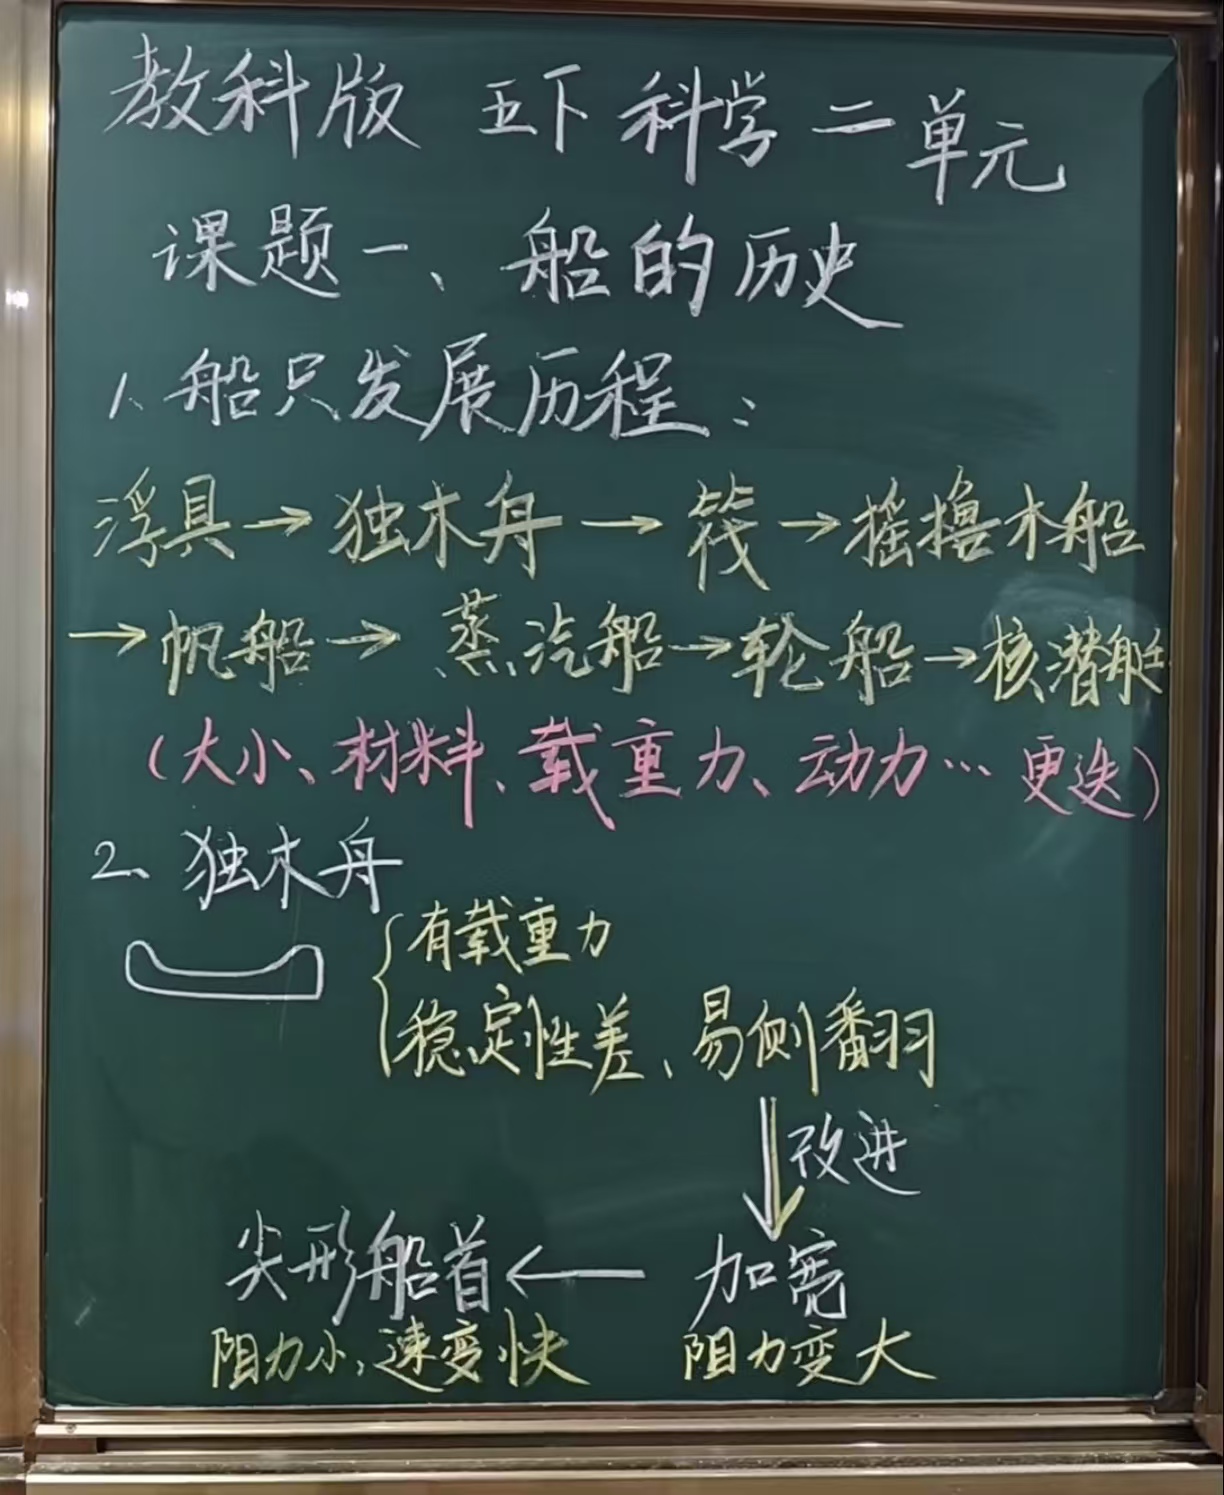 教科版 五下 科学 二单元
课题一、船的历史
1、船只发展历程：
浮具→独木舟→筏→摇撸木船
→帆船→蒸汽船→轮船→核潜艇
（大小、材料、载重力、动力… 更迭）
2、独木舟
有载重力
稳定性差、易侧翻
改进
尖形船首←加宽
阻力小，速变快 阻力变大